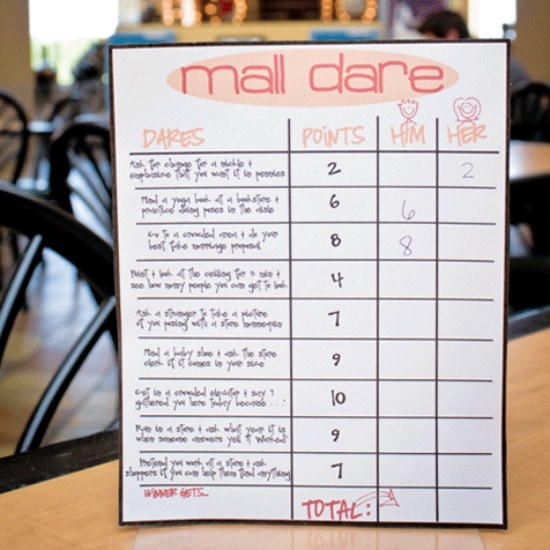 mall dare
DARES POINTS HIM HER
Ask for change for a nickle & 2 2
emphasize that you want it in pennies
Find a yoga book at a bookstore & 6 6
practice doing poses in the aisle
Go to a crowded area & do your 8 8
best fake marriage proposal
Point & look at the ceiling for 3 min & 4
see how many people you can get to look
Ask a stranger to take a picture 7
of you posing with a store mannequin
Find a baby shoe & ask the store 9
clerk if it comes in your size
Get in a crowded elevator & say "I 10
gathered you here today because . . ."
Run in a store & ask what year it is 9
when someone answers yell it Worked!
Pretend you work at a store & ask 7
shoppers if you can help them find anything
WINNER GETS...
TOTAL: